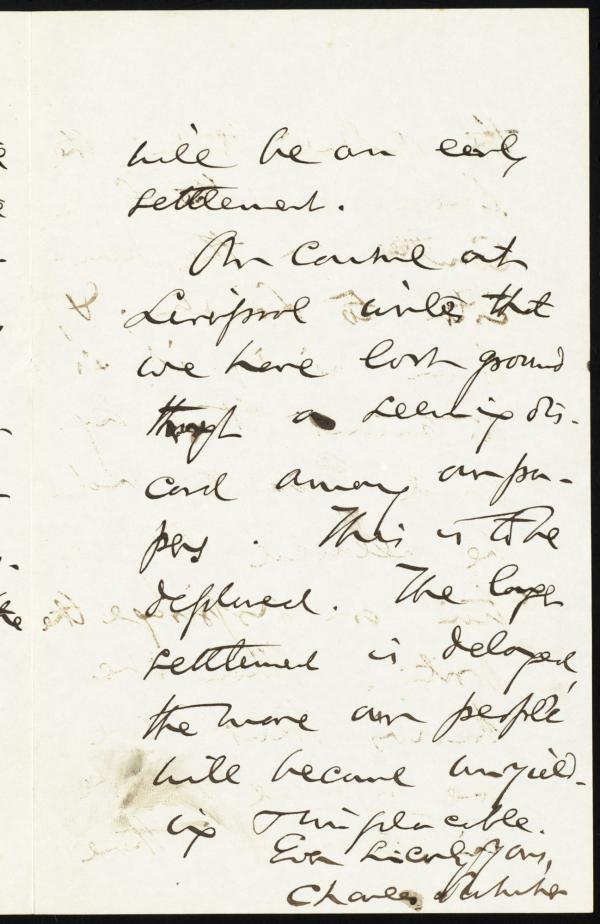 will be an early
settlement.
Our Consul at
Liverpool writes that
we have lost ground
through a seeming dis-
cord among our pa-
pers. This is to be
deplored. The longer
settlement is delayed,
the more our people
will become unyield-
ing & implacable.
Ever sincerely Yours,
Charles Sumner
the